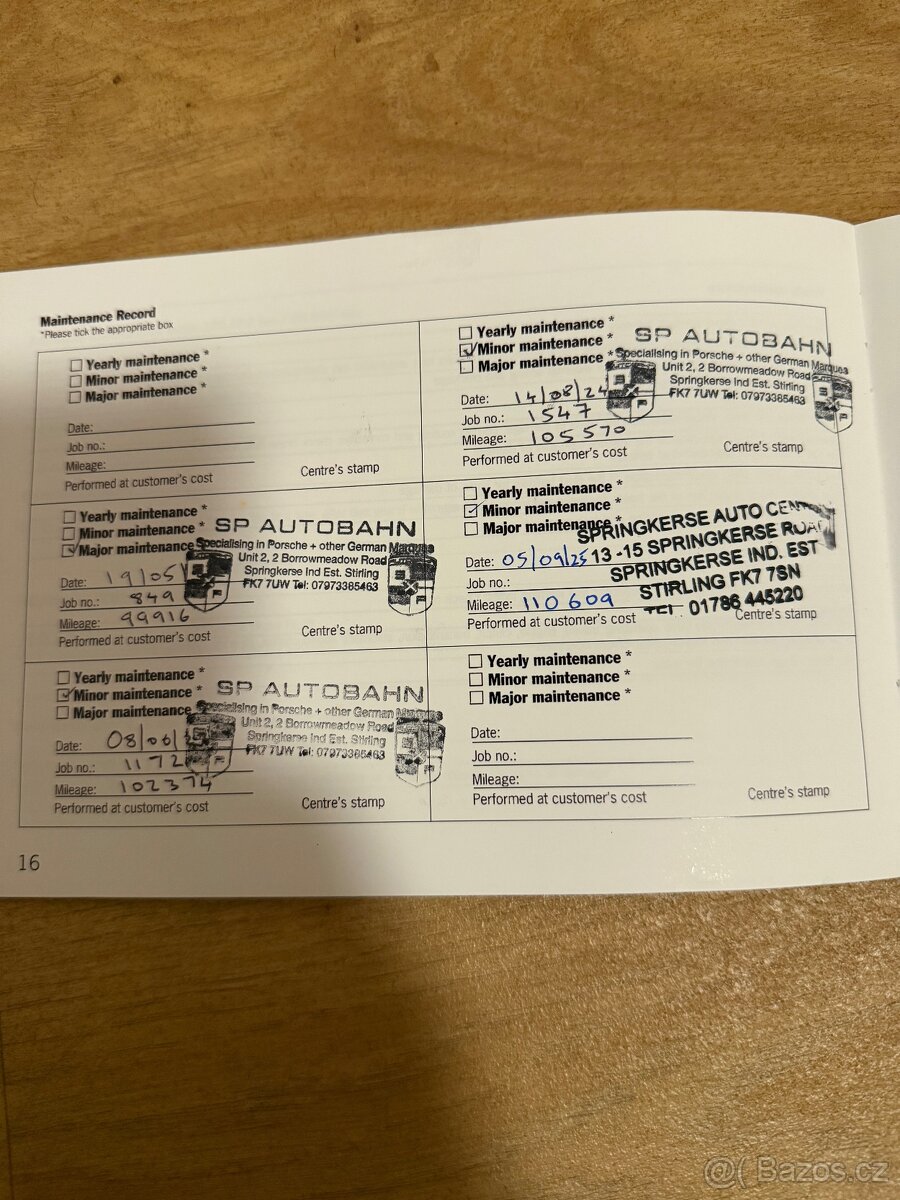 Maintenance Record
*Please tick the appropriate box
Yearly maintenance *
Minor maintenance *
Major maintenance *
Date:
Job no.:
Mileage:
Performed at customer's cost
Centre's stamp
Yearly maintenance *
Minor maintenance *
Major maintenance
SP AUTOBAHN
Specialising in Porsche + other German Marques
Unit 2, 2 Borrowmeadow Road
Springkerse Ind Est. Stirling
FK7 7UW Tel: 07973365463
Date: 19/05/
Job no.: 849
Mileage: 99916
Performed at customer's cost
Centre's stamp
Yearly maintenance *
Minor maintenance *
Major maintenance
SP AUTOBAHN
Specialising in Porsche + other German Marques
Unit 2, 2 Borrowmeadow Road
Springkerse Ind Est. Stirling
FK7 7UW Tel: 07973365463
Date: 08/06/
Job no.: 1172
Mileage: 102374
Performed at customer's cost
Centre's stamp
Yearly maintenance *
Minor maintenance *
Major maintenance *
SP AUTOBAHN
Specialising in Porsche + other German Marques
Unit 2, 2 Borrowmeadow Road
Springkerse Ind Est. Stirling
FK7 7UW Tel: 07973365463
Date: 14/08/24
Job no.: 1547
Mileage: 105570
Performed at customer's cost
Centre's stamp
Yearly maintenance *
Minor maintenance *
Major maintenance *
SPRINGKERSE AUTO
13 -15 SPRINGKERSE ROAD
SPRINGKERSE IND. EST
STIRLING FK7 7SN
TEL: 01786 445220
Date: 05/09/25
Job no.:
Mileage: 110609
Performed at customer's cost
Centre's stamp
Yearly maintenance *
Minor maintenance *
Major maintenance *
Date:
Job no.:
Mileage:
Performed at customer's cost
Centre's stamp
16
@( Bazos.cz